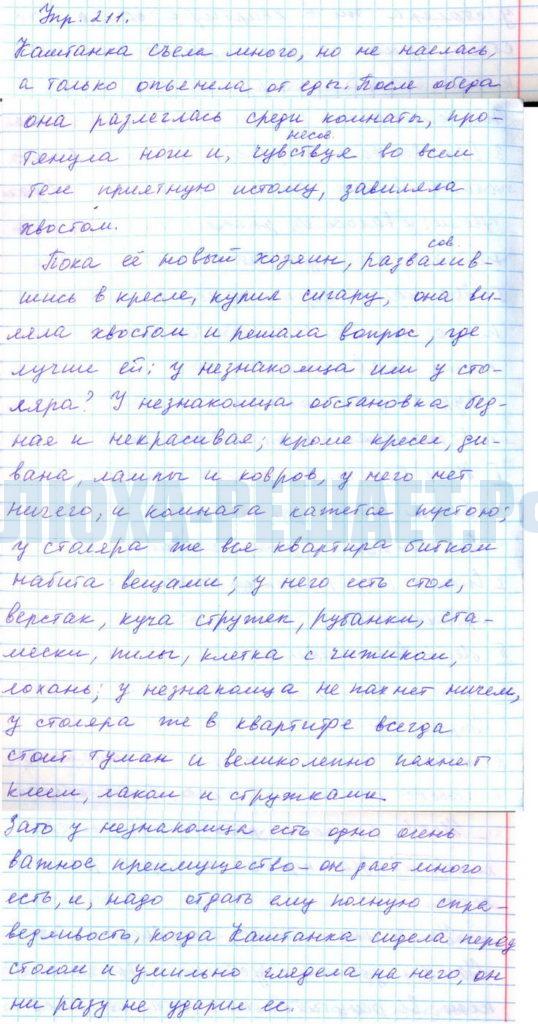 Упр. 211.
Каштанка съела много, но не наелась,
а только опьянела от еды. После обеда
она разлеглась среди комнаты, про-
несов.
тянула ноги и, чувствуя во всем
теле приятную истому, завиляла
хвостом.
сов.
Пока её новый хозяин, развалив-
шись в кресле, курил сигару, она ви-
ляла хвостом и решала вопрос, где
лучше ей: у незнакомца или у сто-
ляра? У незнакомца обстановка бед-
ная и некрасивая; кроме кресел, ди-
вана, лампы и ковров, у него нет
ничего, и комната кажется пустою;
у столяра же вся квартира битком
набита вещами; у него есть стол,
верстак, куча стружек, рубанки, ста-
мески, пилы, клетка с чижиком,
лохань; у незнакомца не пахнет ничем,
у столяра же в квартире всегда
стоит туман и великолепно пахнет
клеем, лаком и стружками.
Зато у незнакомца есть одно очень
важное преимущество – он дает много
есть, и, надо отдать ему полную спра-
ведливость, когда Каштанка сидела перед
столом и умильно глядела на него, он
ни разу не ударил ее.